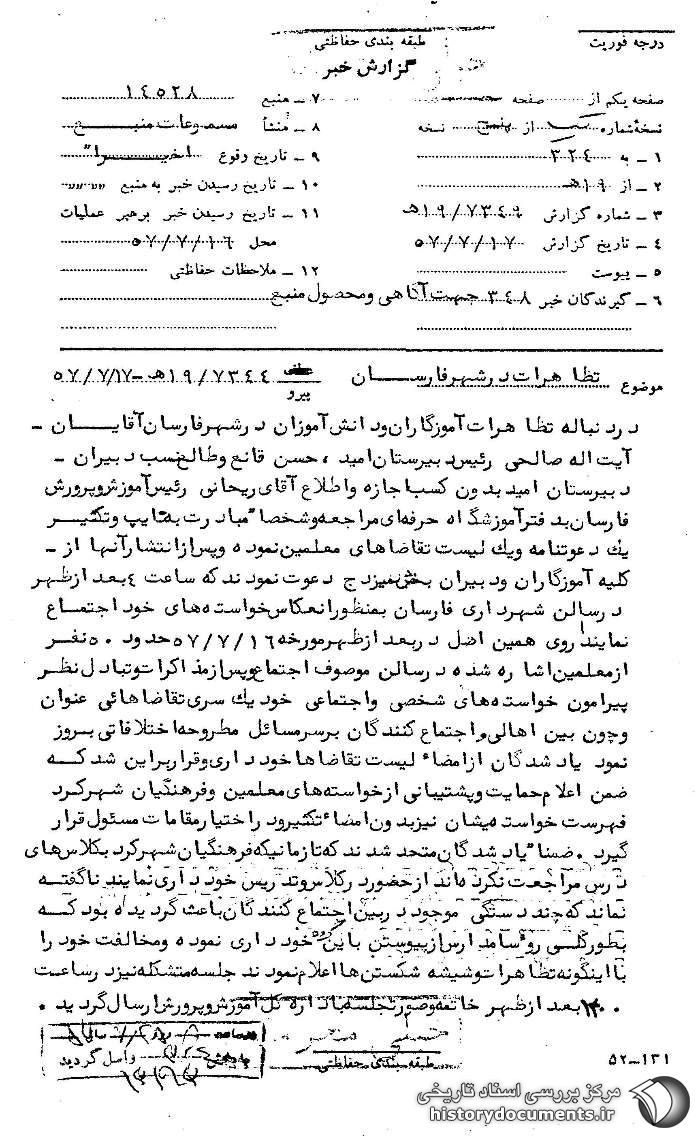 درجه فوریت
طبقه بندی حفاظتی
گزارش خبر
صفحه یکم از صفحه
نسخه شماره از پنج نسخه
۱ ـ به ۳۲۴
۲ ـ از ۱۹هـ
۳ ـ شماره گزارش ۱۹/۷۳۴۹هـ
۴ ـ تاریخ گزارش ۵۷/۷/۱۷
۵ ـ پیوست
۶ ـ گیرندگان خبر ۳۴۸ جهت آگاهی و محصول منبع
۷ ـ منبع ۱۴۵۲۸
۸ ـ منشأ مسموعات منبع
۹ ـ تاریخ وقوع اخیرا"
۱۰ ـ تاریخ رسیدن خبر به منبع " " "
۱۱ ـ تاریخ رسیدن خبر برهبر عملیات
محل ۵۷/۷/۱۶
۱۲ ـ ملاحظات حفاظتی
موضوع تظاهرات در شهر فارسان عطف پیرو ۱۹/۷۳۴۴هـ-۵۷/۷/۱۷
در دنباله تظاهرات آموزگاران و دانش آموزان در شهر فارسان آقایان ـ
آیت اله صالحی رئیس دبیرستان امید ، حسن قانع و طالع نسب دبیران ـ
دبیرستان امید بدون کسب اجازه و اطلاع آقای ریحانی رئیس آموزش و پرورش
فارسان بدفتر آموزشگاه حرفه‌ای مراجعه و شخصا" مبادرت به تایپ و تکثیر
یک دعوتنامه و یک لیست تقاضاهای معلمین نموده و پس از انتشار آنها از ـ
کلیه آموزگاران و دبیران بخش میزدج دعوت نمودند که ساعت ۴ بعد از ظهر
در سالن شهرداری فارسان بمنظور انعکاس خواسته‌های خود اجتماع
نمایند روی همین اصل در بعد از ظهر مورخه ۵۷/۷/۱۶ حدود ۵۰ نفر
از معلمین اشاره شده در سالن موصوف اجتماع و پس از مذاکرات و تبادل نظر
پیرامون خواسته‌های شخصی و اجتماعی خود یک سری تقاضاهائی عنوان
و چون بین اهالی و اجتماع کنندگان بر سر مسائل مطروحه اختلافاتی بروز
نمود یاد شدگان از امضاء لیست تقاضاها خودداری و قرار براین شد که
ضمن اعلام حمایت و پشتیبانی از خواسته‌های معلمین و فرهنگیان شهرکرد
فهرست خواسته‌هایشان نیز بدون امضاء تکثیر و در اختیار مقامات مسئول قرار
گیرد . ضمنا" یاد شدگان متحد شدند که تا زمانیکه فرهنگیان شهرکرد بکلاس‌های
درس مراجعت نکرده‌اند از حضور در کلاس و تدریس خودداری نمایند ناگفته
نماند که چند دستگی موجود در بین اجتماع کنندگان باعث گردیده بود که
بطور کلی روسا مدارس از پیوستن با این گروه خودداری نموده و مخالفت خود را
با اینگونه تظاهرات و شیشه شکستن ها اعلام نمودند جلسه متشکله نیز در ساعت
۱۷۰۰ بعد از ظهر خاتمه و صورتجلسه باداره کل آموزش و پرورش ارسال گردید .
طبقه بندی حفاظتی
واصل گردید
۵۲-۱۳۱
مرکز بررسی اسناد تاریخی
historydocuments.ir